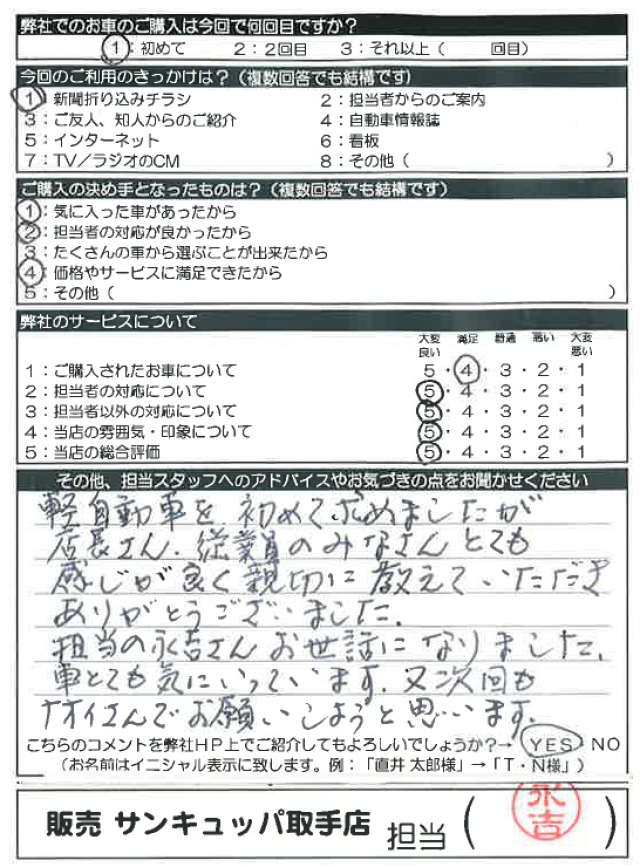 弊社でのお車のご購入は今回で何回目ですか?
1:初めて 2:2回目 3:それ以上( 回目)
今回のご利用のきっかけは?(複数回答でも結構です)
1:新聞折り込みチラシ 2:担当者からのご案内
3:ご友人、知人からのご紹介 4:自動車情報誌
5:インターネット 6:看板
7:TV/ラジオのCM 8:その他( )
ご購入の決め手となったものは?(複数回答でも結構です)
1:気に入った車があったから
2:担当者の対応が良かったから
3:たくさんの車から選ぶことが出来たから
4:価格やサービスに満足できたから
5:その他( )
弊社のサービスについて
大変良い 満足 普通 悪い 大変悪い
1:ご購入されたお車について 5・4・3・2・1
2:担当者の対応について 5・4・3・2・1
3:担当者以外の対応について 5・4・3・2・1
4:当店の雰囲気・印象について 5・4・3・2・1
5:当店の総合評価 5・4・3・2・1
その他、担当スタッフへのアドバイスやお気づきの点をお聞かせください
軽自動車を初めて求めましたが
店長さん、従業員のみなさんとても
感じが良く親切に教えていただき
ありがとうございました。
担当の永吉さんお世話になりました。
車とても気にいっています。又次回も
ナオイさんでお願いしようと思います。
こちらのコメントを弊社HP上でご紹介してもよろしいでしょうか?→ YES・NO
(お名前はイニシャル表示に致します。例:「直井 太郎様」→「T・N様」)
販売 サンキュッパ取手店 担当( 永吉 )